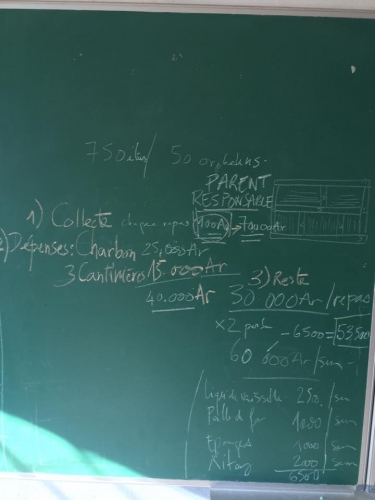 750 élèves/ 50 orphelins.
PARENT
RESPONSABLE
1) Collecte chaque repas 100Ar → 70.000Ar
2) Dépenses: Charbon 25,000Ar
3 Cantinières 15.000Ar
40.000Ar
3) Reste
30 000Ar/repas
x2 - 6500 = 53500
60 000Ar/sem
Liquide vaisselle 250, /sem
Paille de fer 1000 /sem
Eponges 1000 /sem
2000 /sem
6500